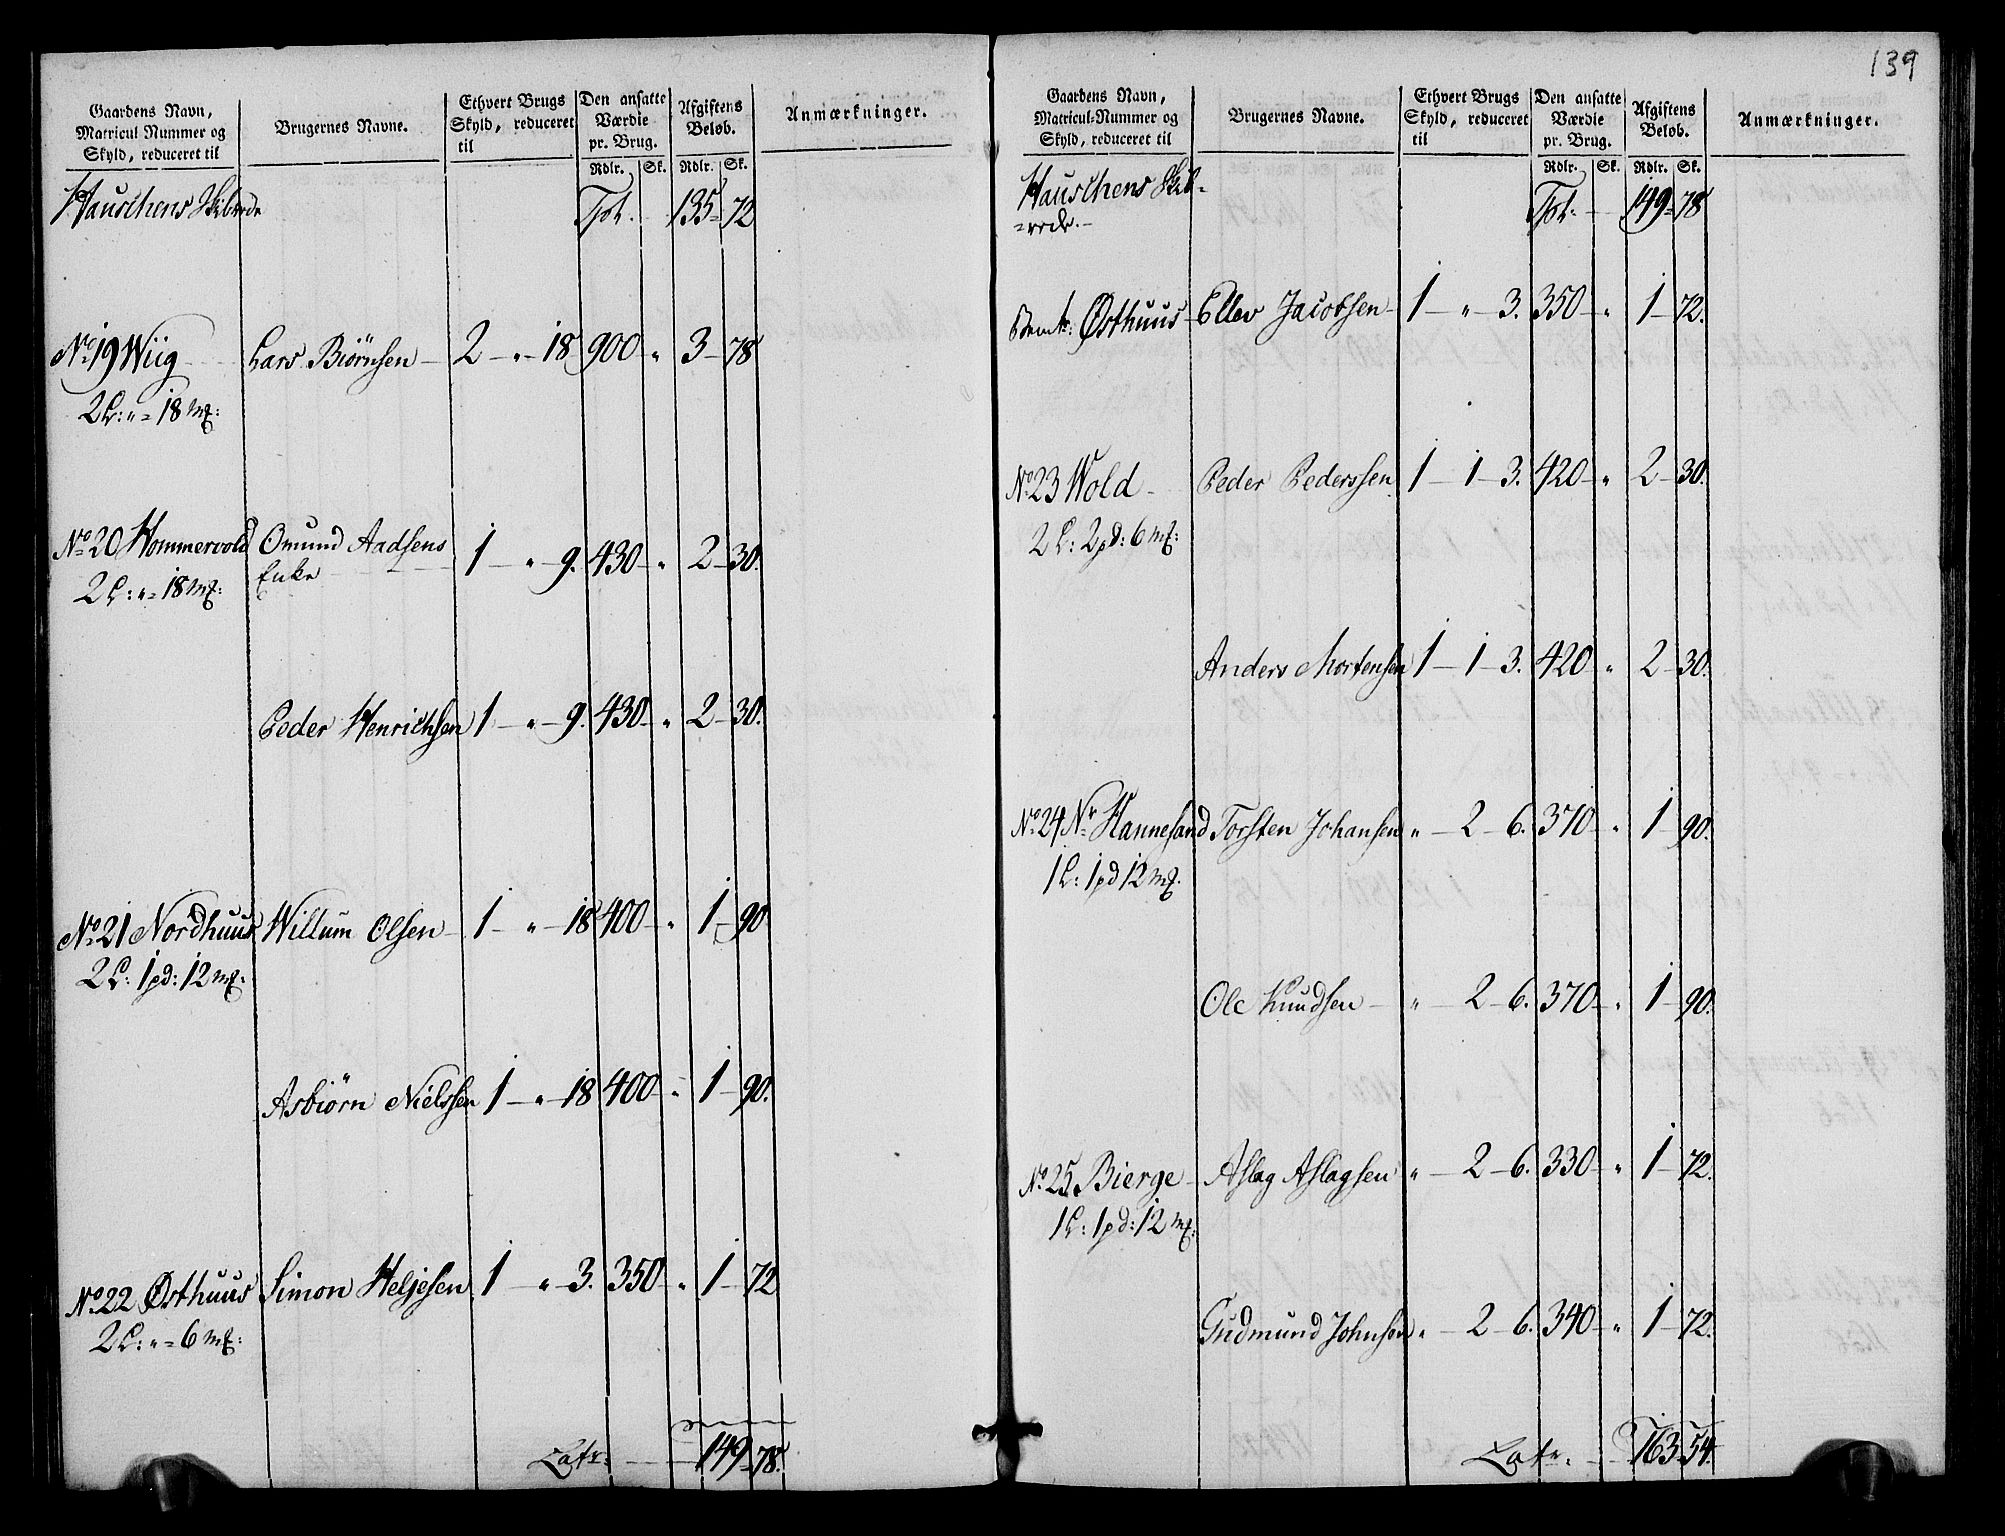 Gaardens Navn, Matricul Nummer og Skyld, reduceret til | Brugernes Navne. | Ethvert Brugs Skyld, reduceret til | Den ansatte Værdie pr. Brug. | Afgiftens Beløb. | Anmærkninger.
Rdlr. Sk. Rdlr. Sk.
Hauschens Skibrede Tpt. 135 - 72
No 19 Wiig Lars Biørnsen 2 - " - 18 900 " 3 - 78
2 L: " = 18 mk:
No 20 Hommervold Omund Aadsens 1 - " - 9. 430 - " 2 - 30.
2 L: " = 18 mk: Enke
Peder Henrichsen 1 - " - 9. 430 - " 2 - 30.
No 21 Nordhuus Willum Olsen 1 - " - 18 400 - " 1 - 90
2 L: 1 pd: 12 mk:
Asbiørn Nielssen 1 - " - 18 400 - " 1 - 90.
No 22 Østhuus Simon Heljesen 1 - " - 3. 350 - " 1 - 72
2 L: " = 6 mk:
Latr: 149 - 78.
139
Gaardens Navn, Matricul-Nummer og Skyld, reduceret til | Brugernes Navne. | Ethvert Brugs Skyld, reduceret til | Den ansatte Værdie pr. Brug. | Afgiftens Beløb. | Anmærkninger.
Rdlr. Sk. Rdlr. Sk.
Hauschens Skib- Tpt. 149 - 78
=rede.
Østhuus Ellev Jacobsen 1 - " - 3. 350 - " 1 - 72.
No 23 Wold Peder Pederssen 1 - 1 - 3. 420 - " 2 - 30.
2 L: 2 pd: 6 mk:
Anders Mortensen 1 - 1 - 3. 420 " 2 - 30.
No 24 Nr Hannesand Torsten Johansen " - 2 - 6. 370 - " 1 - 90.
1 L: 1 pd 12 mk.
Ole Knudsen " - 2 - 6. 370 - " 1 - 90.
No 25 Bierge Aslag Aslagsen " - 2 - 6. 330 - " 1 - 72.
1 L: 1 pd: 12 mk:
Gudmund Johnsen " - 2 - 6. 340 - " 1 - 72.
Latr. 163 - 54.